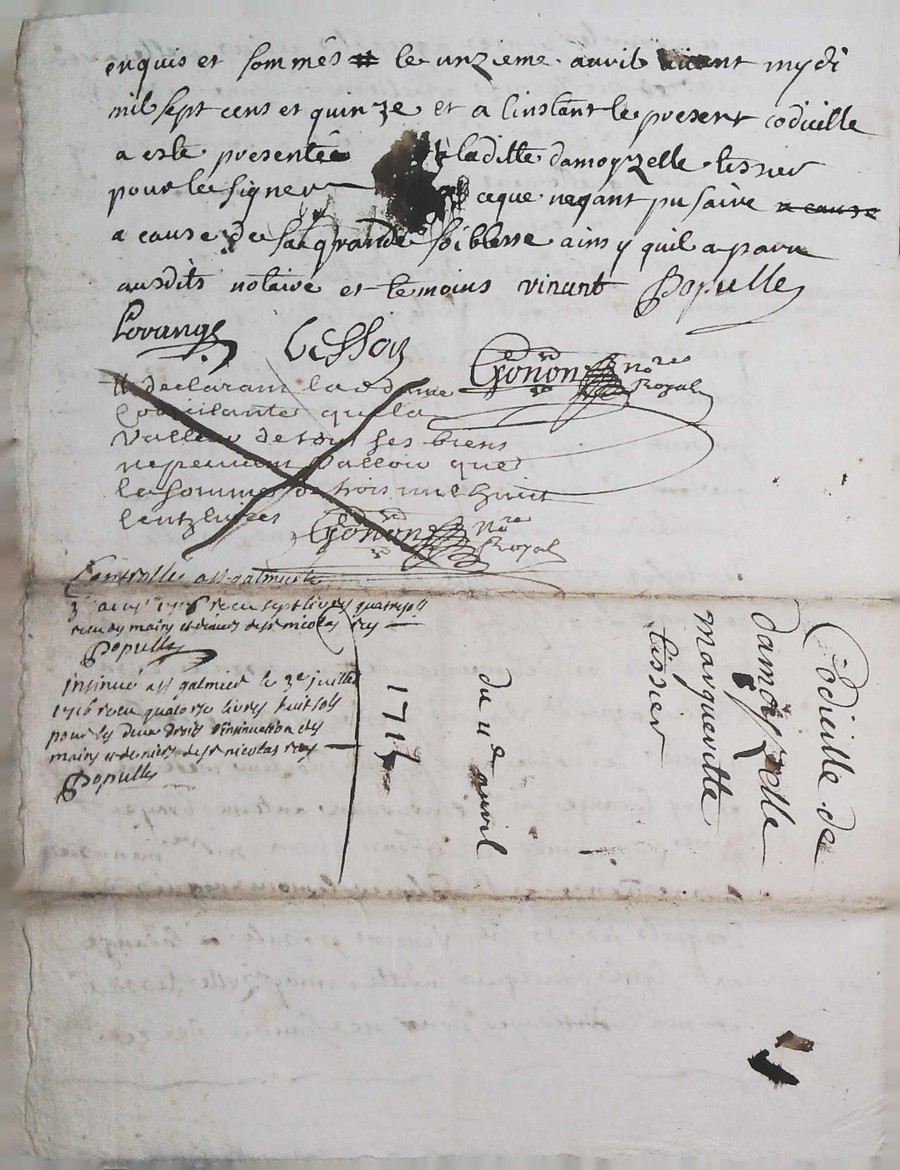 enquis et sommés # le unzieme auvil avant mydi
mil sept cens et quinze et a linstant le present codicille
a esté presentée a laditte damoyzelle tissier
pour le signer ceque nayant pu faire a cause
a cause de sa grande foiblesse ainsy quil a paru
ausdits notaire et temoins vinant Populle
Lovange Cesson Gonon no.re Royal
# declarant lad dame
Codicilante que la
valleur de tous ses biens
ne peuvent valloir que
le somme de trois mil huit
Centz livres Gonon no.re Royal
Controllé a st galmier le
3e 1716 receu sept livres quatre sols
receu des mains et deniers de sr nicolas rey
Populle
insinué a st galmier le 3e juillet
1716 receu quatorze livres huit sols
pour les deux droits d'insinuation des
mains et deniers de sr nicolas rey
Populle
Codicille de
damoyzelle
margueritte
tissier
du 11e auvril
1715